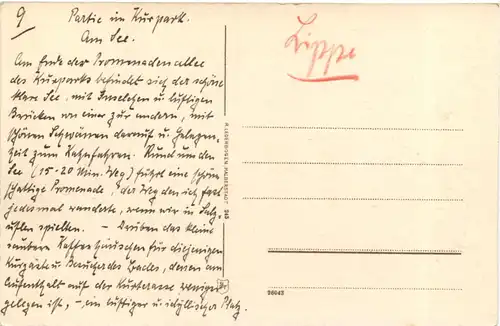 9
Partie im Kurpark.
Am See.
Am Ende der Promenadenallee
des Kurparks befindet sich der schöne
klare See, mit Inselchen u luftigen
Brücken von einer zur andern, mit
schönen Schwänen darauf u. Gelegen-
heit zum Kahnfahren. Rund um den
See (15-20 Min. Weg) führt eine schöne
schattige Promenade, der Weg den ich fast
jedesmal wanderte, wenn wir in Salz-
uflen spielten. – Darüben das kleine
saubere Kaffeehäuschen für diejenigen
Kurgäste u. Besucher des Bades, denen am
Aufenthalt auf der Kurterasse weniger
gelegen ist, –, ein luftiger u. idyllischer Platz.
Lippe
HALBERSTADT
243
98642